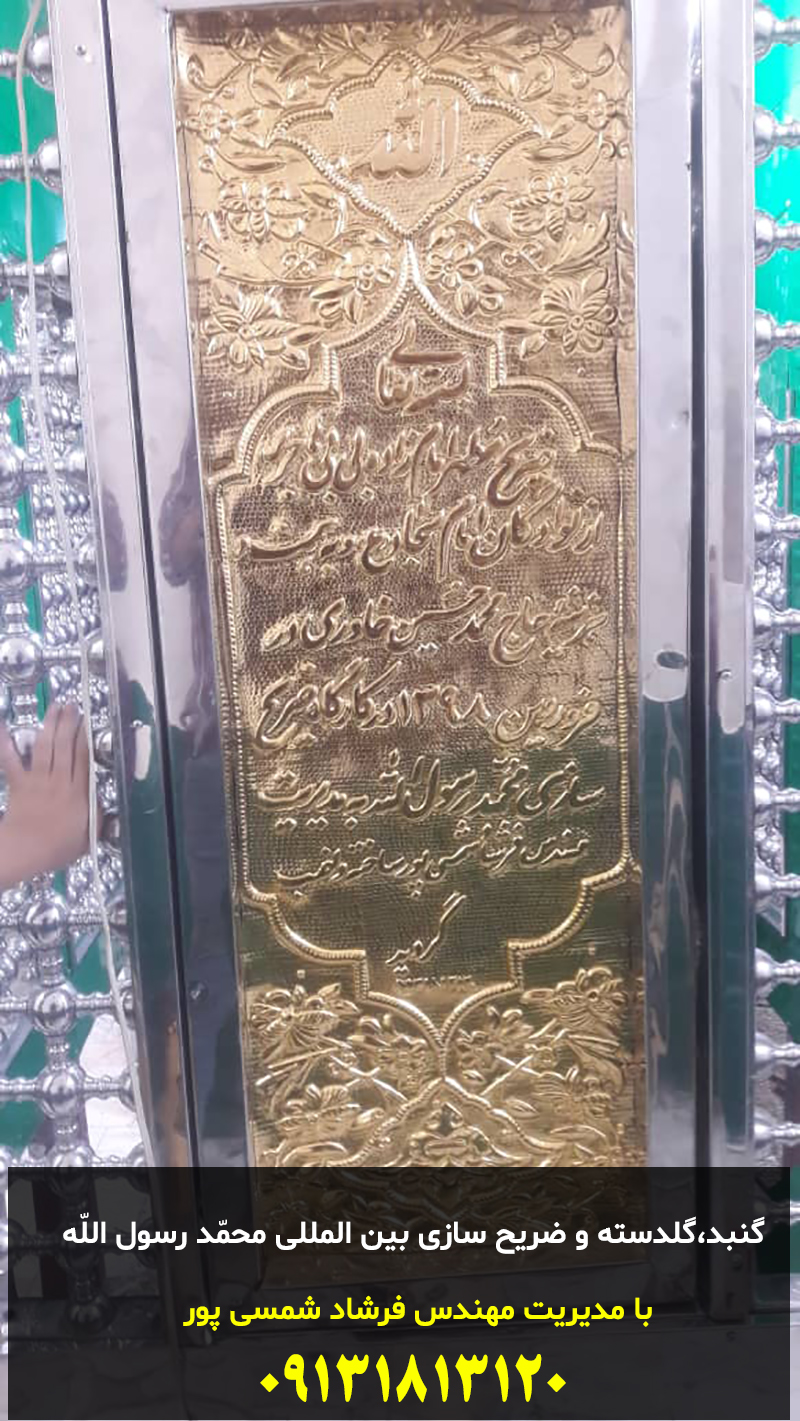 الله
بسمه تعالی
ضریح مطهر امام زاده بی بی
از نوادگان امام سجاد ع
حاج محمد حسین خاوری در
فروردین ۱۳۹۸ در کارگاه ضریح
سازی محمد رسول الله به مدیریت
مهندس فرشاد شمسی پور ساخته و نصب
گردید
گنبد،گلدسته و ضریح سازی بین المللی محمّد رسول اللّه
با مدیریت مهندس فرشاد شمسی پور
۰۹۱۳۱۸۱۳۱۲۰